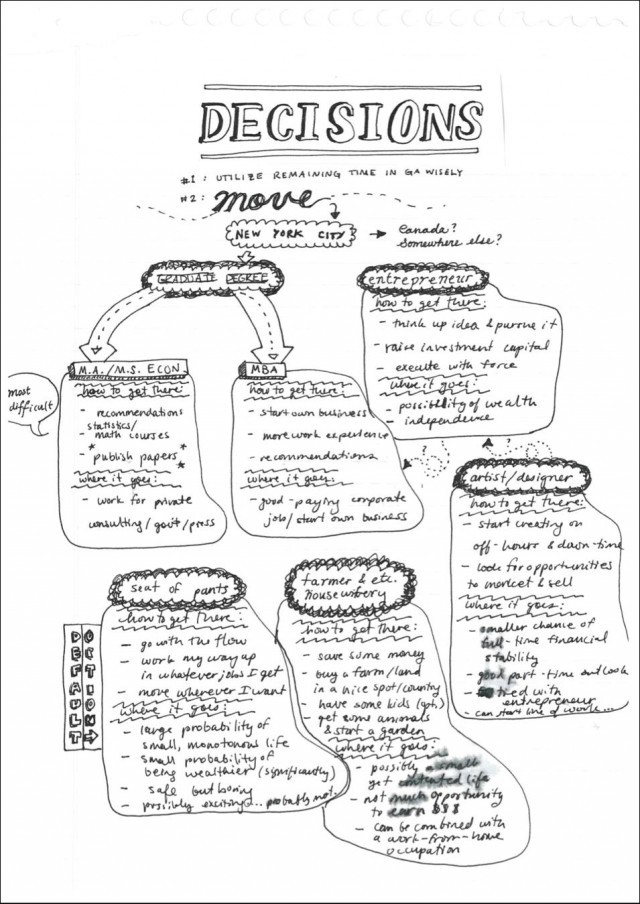 DECISIONS
#1: UTILIZE REMAINING TIME IN GA WISELY
#2: move
NEW YORK CITY
Canada?
Somewhere else?
GRADUATE DEGREE
M.A./M.S. ECON.
how to get there:
most
difficult
- recommendations
statistics/
- math courses
- publish papers
where it goes:
- work for private
consulting/govt/press
MBA
how to get there:
- start own business
- more work experience
- recommendations
where it goes:
- good-paying corporate
job/start own business
entrepreneur
how to get there:
- think up idea & pursue it
- raise investment capital
- execute with force
where it goes:
- possibility of wealth
independence
?
?
artist/designer
how to get there:
- start creating on
off-hours & down-time
- look for opportunities
to market & sell
where it goes:
- smaller chance of
full-time financial
stability
- good part-time outlook
- tied with
entrepreneur
- can start line of work...
DEFAULT
OCTION
seat of pants
how to get there:
- go with the flow
- work my way up
in whatever jobs I get
- move wherever I want
where it goes:
- large probability of
small, monotonous life
- small probability of
being wealthier (significantly)
- safe but boring
- possibly exciting... probably not.
farmer & etc.
housewifery
how to get there:
- save some money
- buy a farm/land
in a nice spot/country
- have some kids
- get some animals
& start a garden
where it goes:
- possibly a small
yet contented life
- not much opportunity
to earn $$$
- can be combined with
a work-from-home
occupation